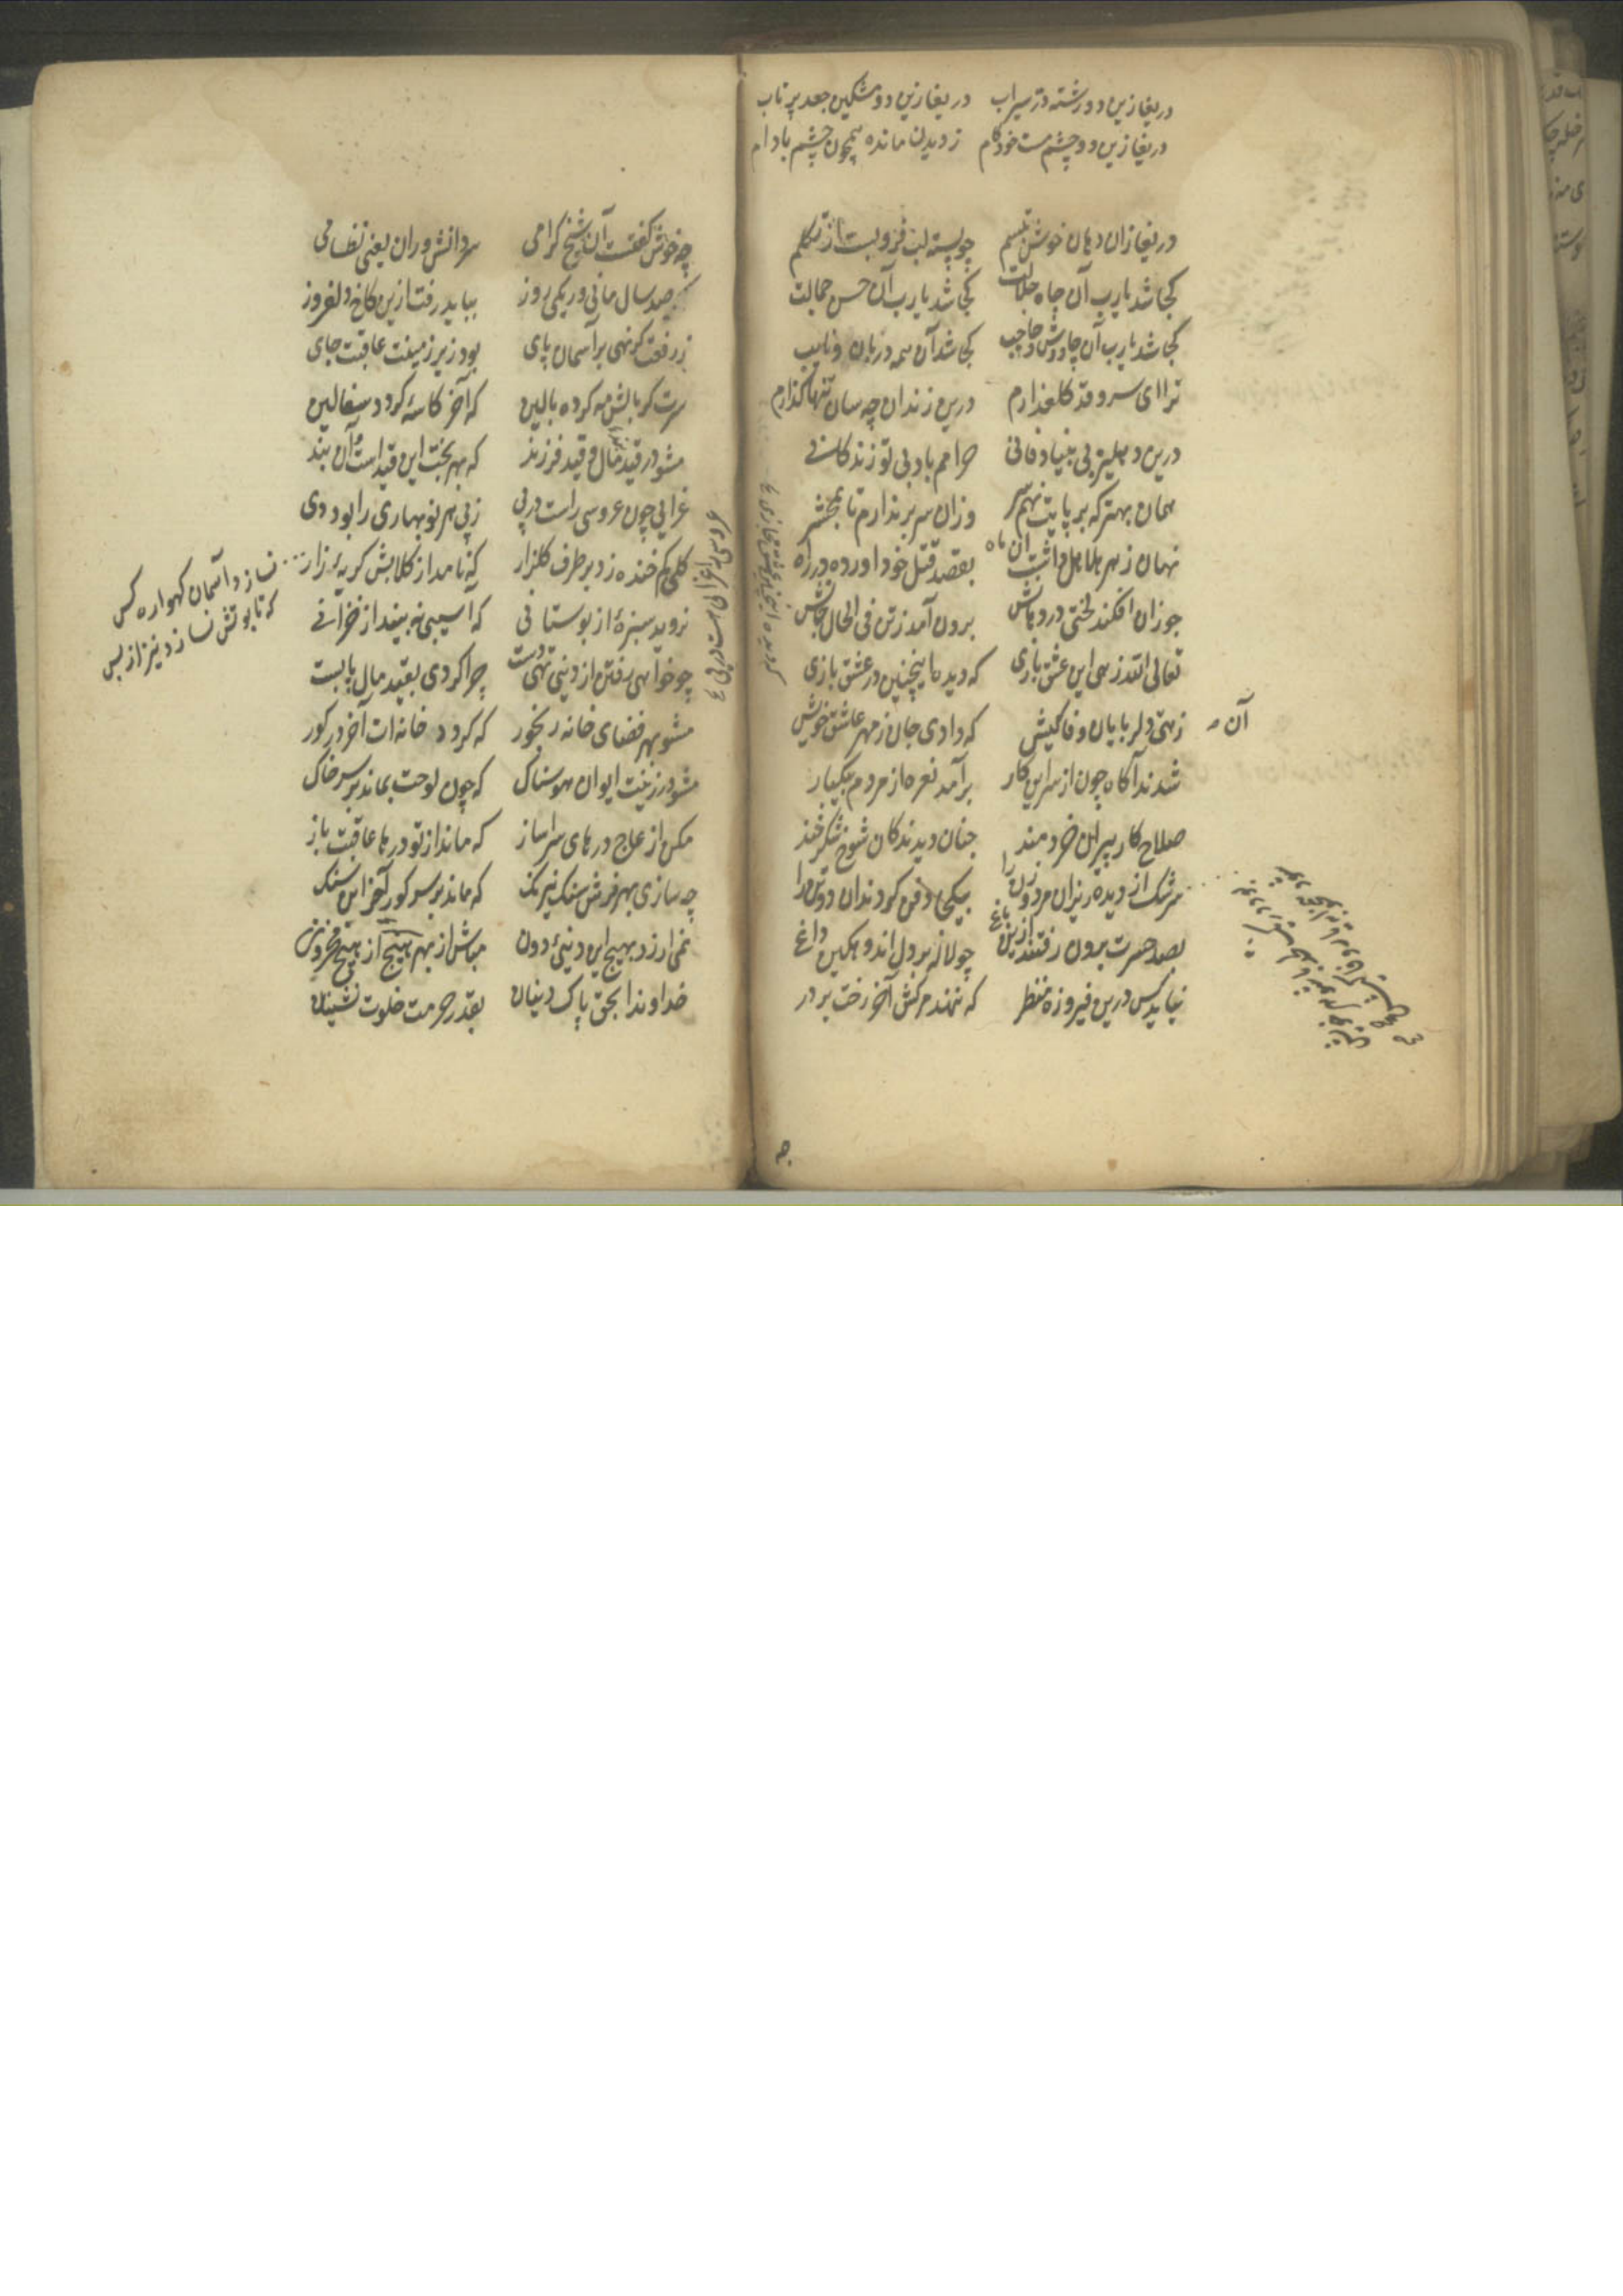 دریغا زین دو رشته در سیراب دریغا زین دو مشکین جعد پرتاب
دریغا زین دو چشم مست خودکام ز دیدن مانده همچون چشم بادام
دریغا زان دهان خوش تبسم چو پسته لب فرو بست از تکلم
کجا شد یارب آن جاه جلالت کجا شد یارب آن حسن جمالت
کجا شد یارب آن چاووش و حاجب کجا شد آن همه دربان و نایب
ترا ای سرو قد کلعذارم درین زندان چه سان تنها کذارم
درین دهلیز بی بنیاد فانی حرامم باد بی تو زندکانی
همان بهتر که بر پایت نهم سر وزان سر برندارم تا بمحشر
نهان زهر هلاهل داشت آن ماه بقصد قتل خود آورده در راه
چو زان افکند لختی در دهانش برون آمد ز تن فی الحال جانش
تعالی الله زهی این عشق بازی که دیده اینچنین در عشق بازی
زهی دلربایان وفا کیش که دادی جان ز مهر عاشق خویش
آن
شدند آکاه چون از سر این کار برآمد نعره از مردم بیکبار
صلاح کار پیران خردمند چنان دیدند کان شوخ شکرخند
سرشک از دیده ریزان مرد و زن را بیکجا دفن کردند آن دو تن را
بصد حسرت برون رفتند ازین باغ چو لاله بر دل اندوهکین داغ
نیاید کس درین فیروزه منظر که ننهد مرکش آخر رخت بر در
چه
چه خوش کفتست آن شیخ کرامی سر دانش وران یعنی نظامی
که صد سال مانی ور یکی روز بباید رفت ازین کاخ دلفروز
ز رفعت کر نهی بر آسمان پای بود زیر زمینت عاقبت جای
سرت کر بالش مه کرده بالین که آخر کاسهٔ کردد سفالین
مشو در قید مال و قید فرزند که بهر بخت این قید است و آن بند
عزایی چون عروسی راست در پی ز پی هم نوبهاری را بود دی
کلی کم خنده زد بر طرف کلزار که نامد از کلابش کریهٔ زار
نسازد آسمان کهواره کس
که تابوتش نسازد نیز از پس
نروید سبزهٔ از بوستانی که آسیبی نه بیند از خزانی
چو خواهی رفتن از دنیی تهی دست چرا کردی بقید مال پابست
مشو بهر فضای خانه رنجور که کردد خانه‌ات آخر در کور
مشو در زینت ایوان هوسناک که چون لوحت بماند بر سر خاک
مکن از علاج درهای سرا ساز که ماند از تو درها عاقبت باز
چه سازی بهر فرش سنک نیرنک که ماند بر سر کور آخر این سنک
نمی ارزد بهیچ این دنیی دون مباش از بهر هیچ از هیچ محزون
خداوندا بحق پاک دینان بقدر حرمت خلوت نشینان